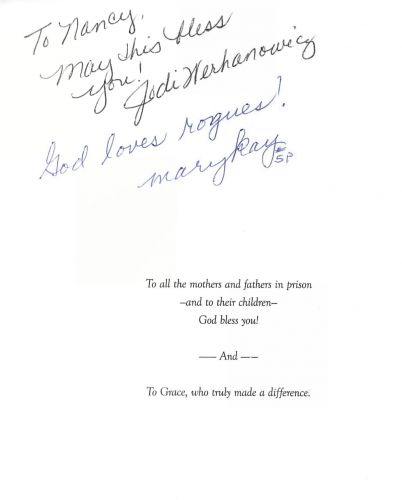 To Nancy,
May this bless
you!
Jodi Werhanowicz
God loves rogues!
marykay
SP
To all the mothers and fathers in prison
–and to their children–
God bless you!
—– And —–
To Grace, who truly made a difference.